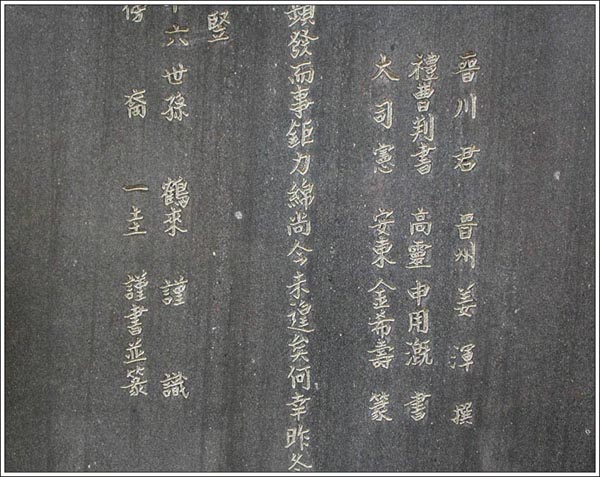 晉川君 晉州姜渾 撰
禮曹判書 高靈申用漑 書
大司憲 安東金希壽 篆
頻發而事鉅力綿尚今未遑矣何幸昨冬
竪
六世孫 鶴來 謹識
傍裔 一圭 謹書並篆